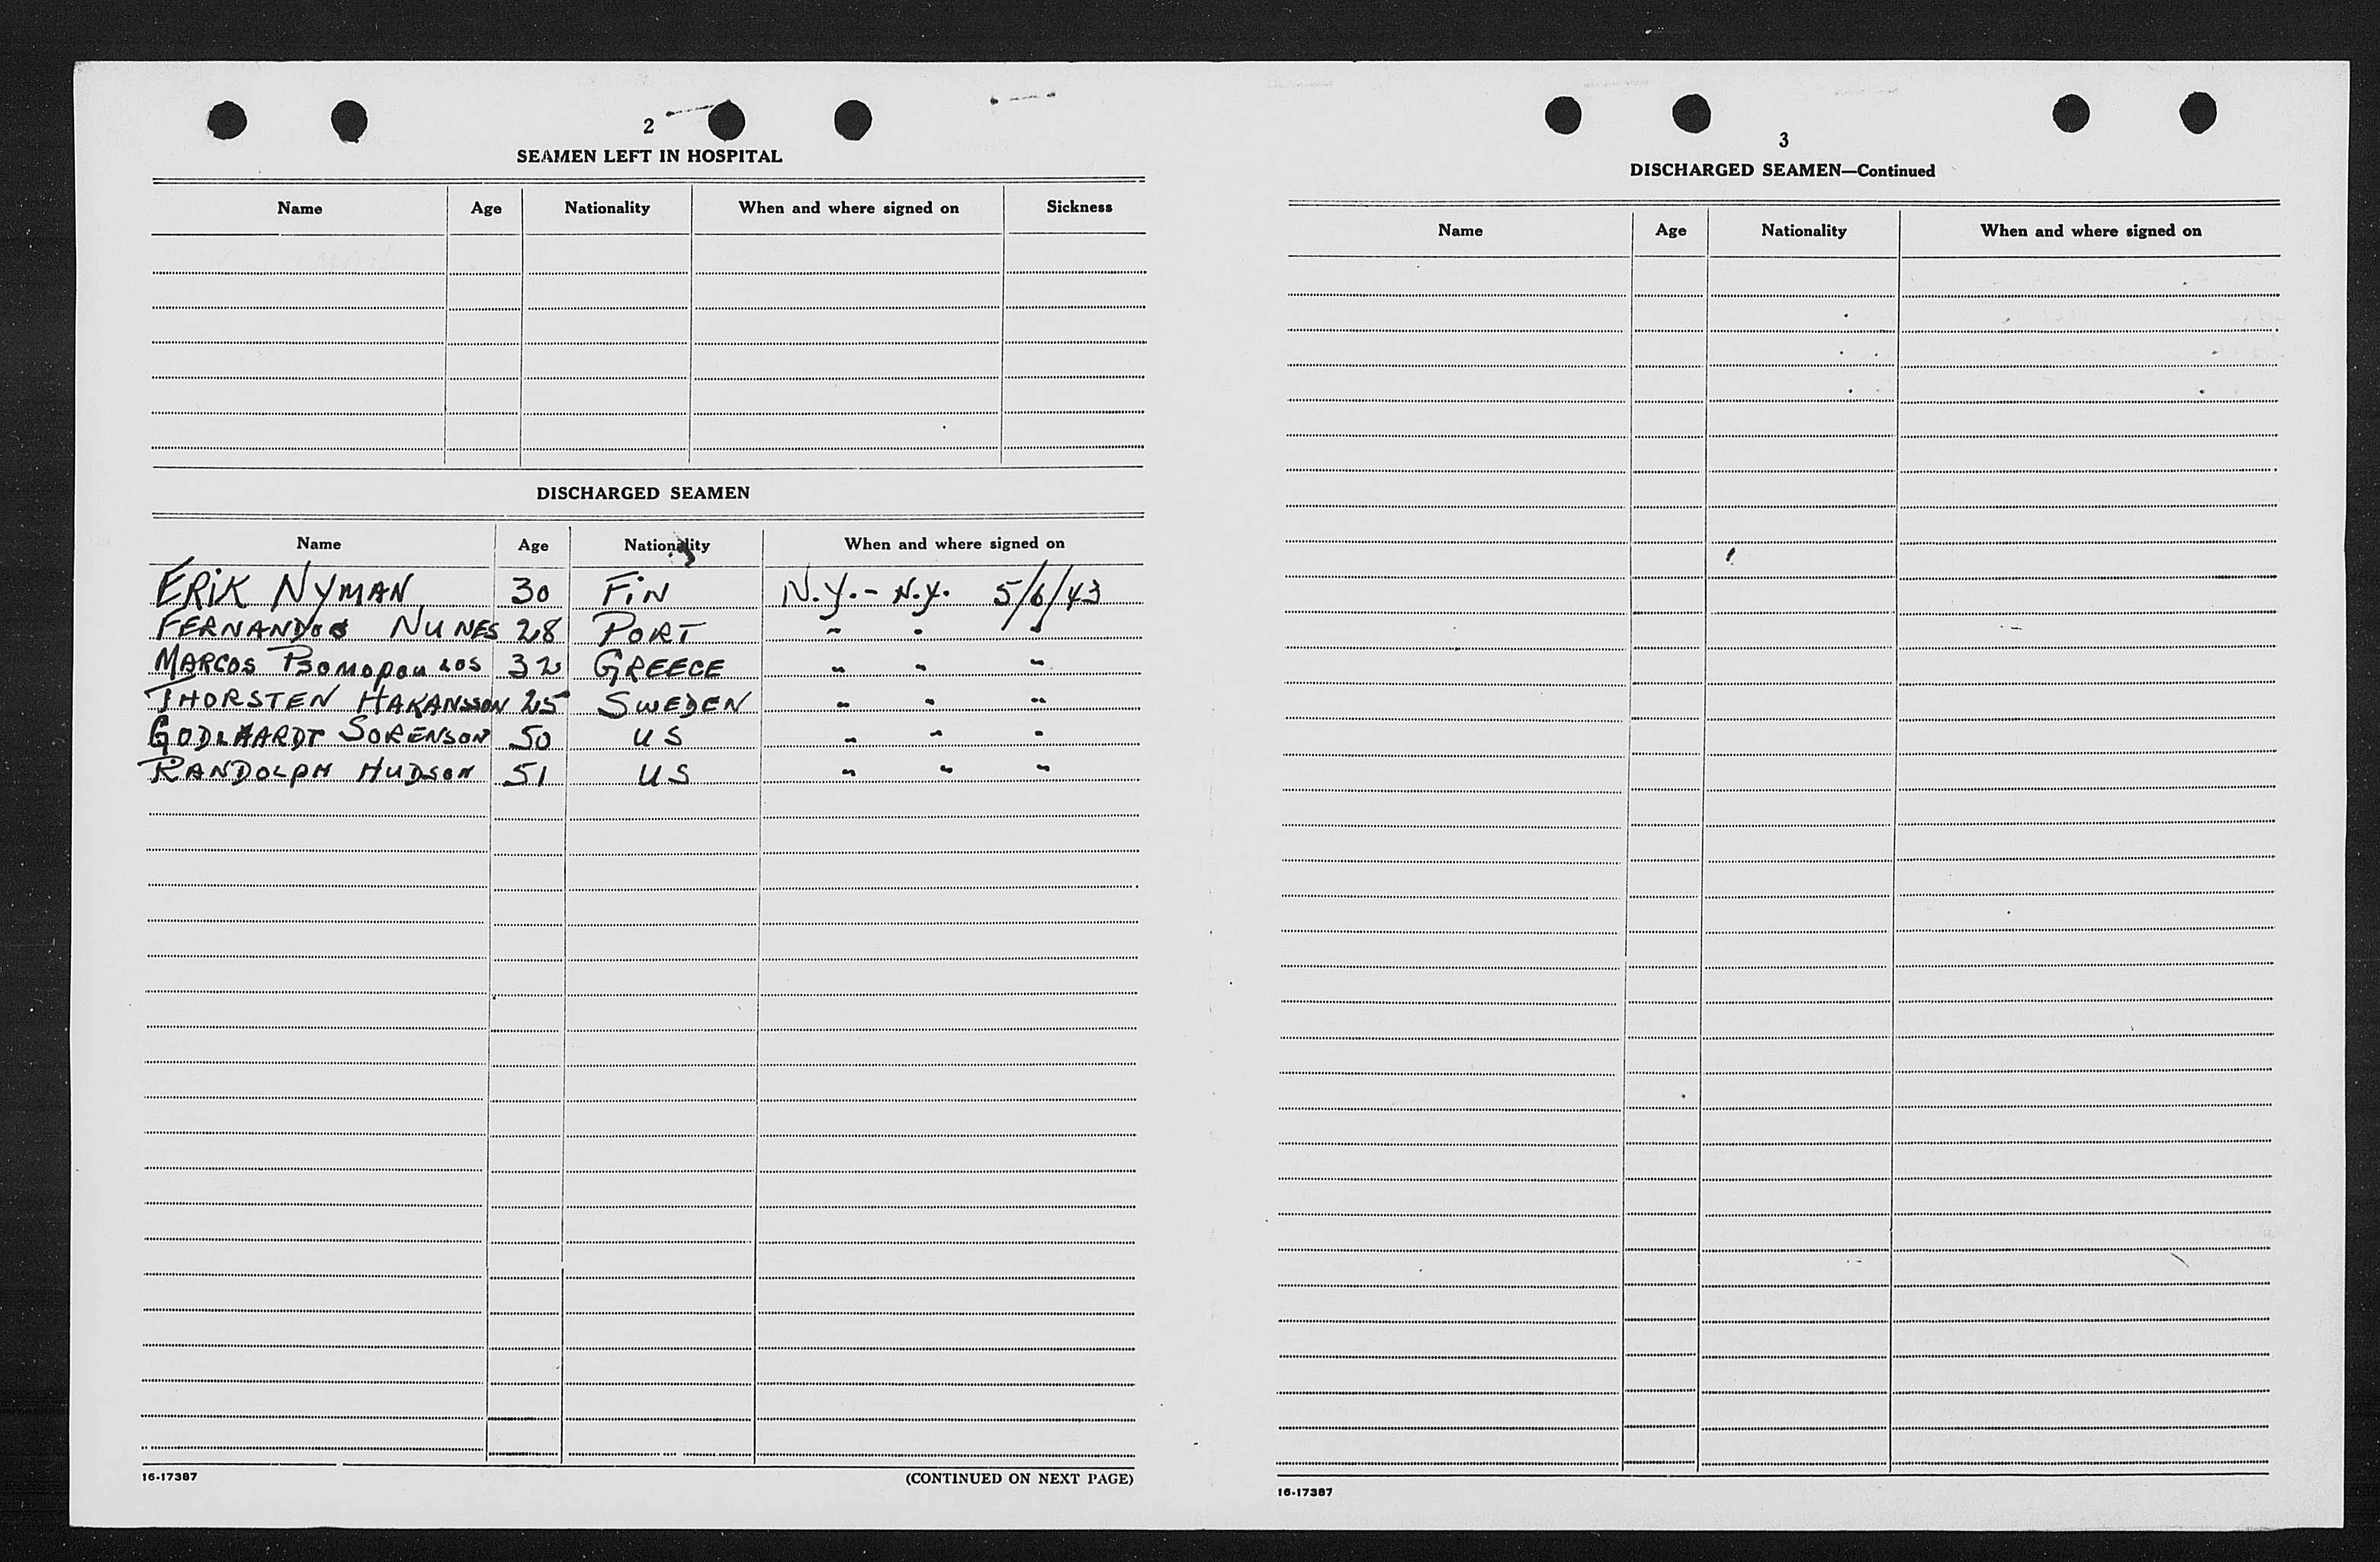 2
SEAMEN LEFT IN HOSPITAL
Name Age Nationality When and where signed on Sickness
DISCHARGED SEAMEN
Name Age Nationality When and where signed on
ERIK NYMAN 30 FIN N.Y.- N.Y. 5/6/43
NUNES 28 PORT " " "
MARCOS PSOMOPOULOS 32 GREECE " " "
THORSTEN HAKANSSON 25 SWEDEN " " "
SORENSON 50 US " " "
RANDOLPH HUDSON 51 US " " "
16-17387 (CONTINUED ON NEXT PAGE)
3
DISCHARGED SEAMEN—Continued
Name Age Nationality When and where signed on
16-17387